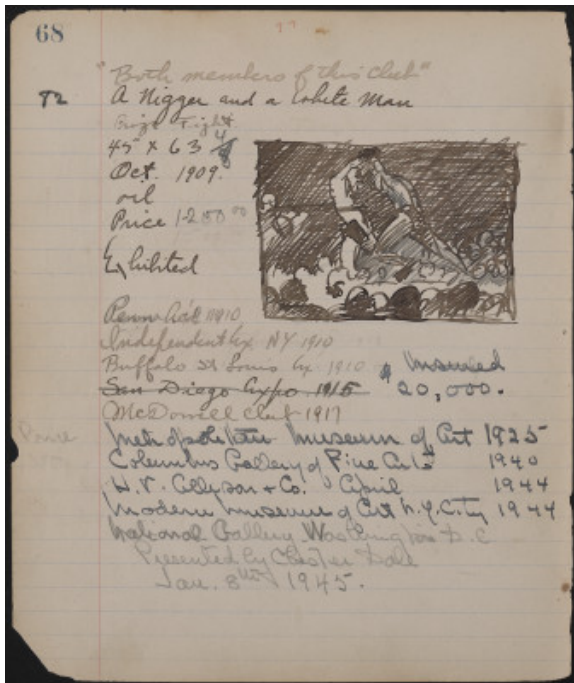 68
"Both members of this Club"
82 A Nigger and a White Man
Prize Fight
45 x 63 1/8
Oct. 1909.
oil
Price 1200 00
Exhibited
Penn Acad 1910
Independent Ex NY 1910
Buffalo St Louis Ex 1910
Insured
San Diego Expo 1915
$20,000.
McDowell Club 1917
Price
Metropolitan Museum of Art 1925
Columbus Gallery of Fine Arts 1940
H.V. Allison & Co. April 1944
Modern Museum of Art N.Y. City 1944
National Gallery Washington D.C
Presented by Chester Dale
Jan. 8th 1945.